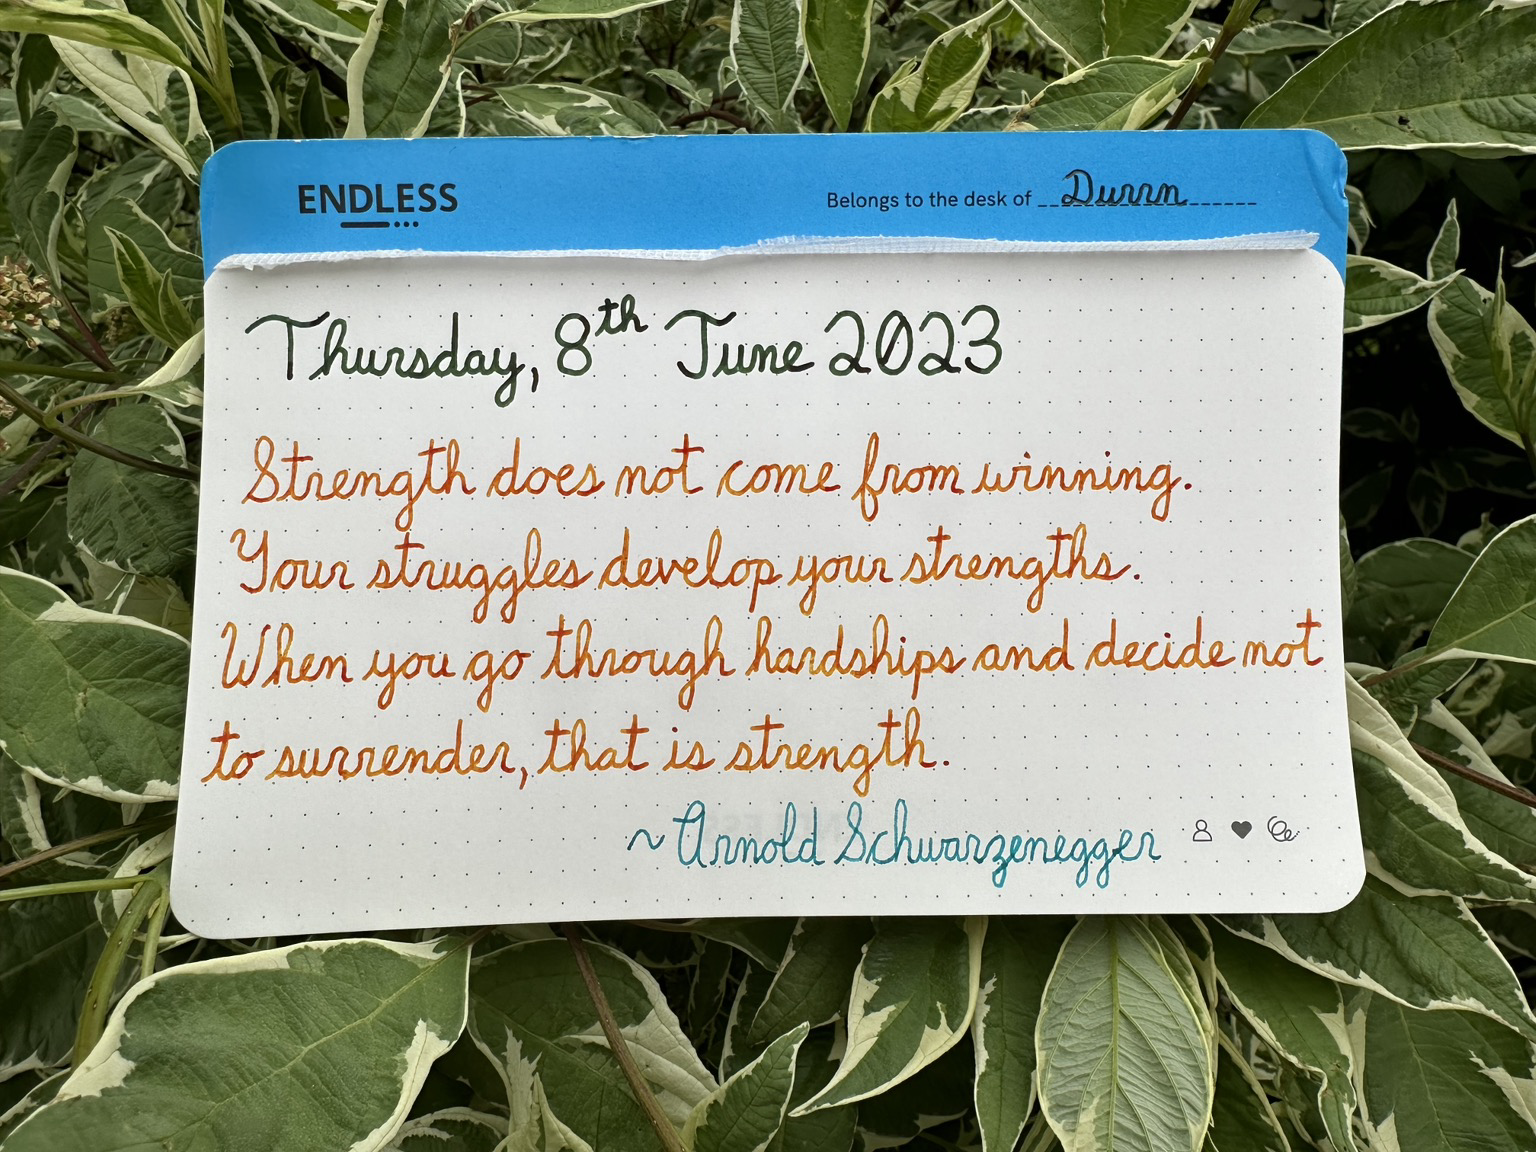 ENDLESS
Belongs to the desk of Durrn
Thursday, 8th June 2023
Strength does not come from winning.
Your struggles develop your strengths.
When you go through hardships and decide not
to surrender, that is strength.
~ Arnold Schwarzenegger